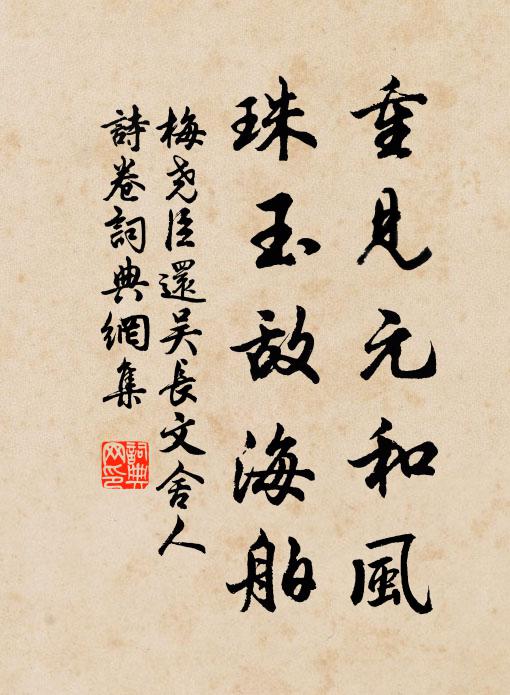 重見元和風
珠玉敵海舶
梅堯臣還吴長文舍人
詩卷詞典網集
詞典
网印